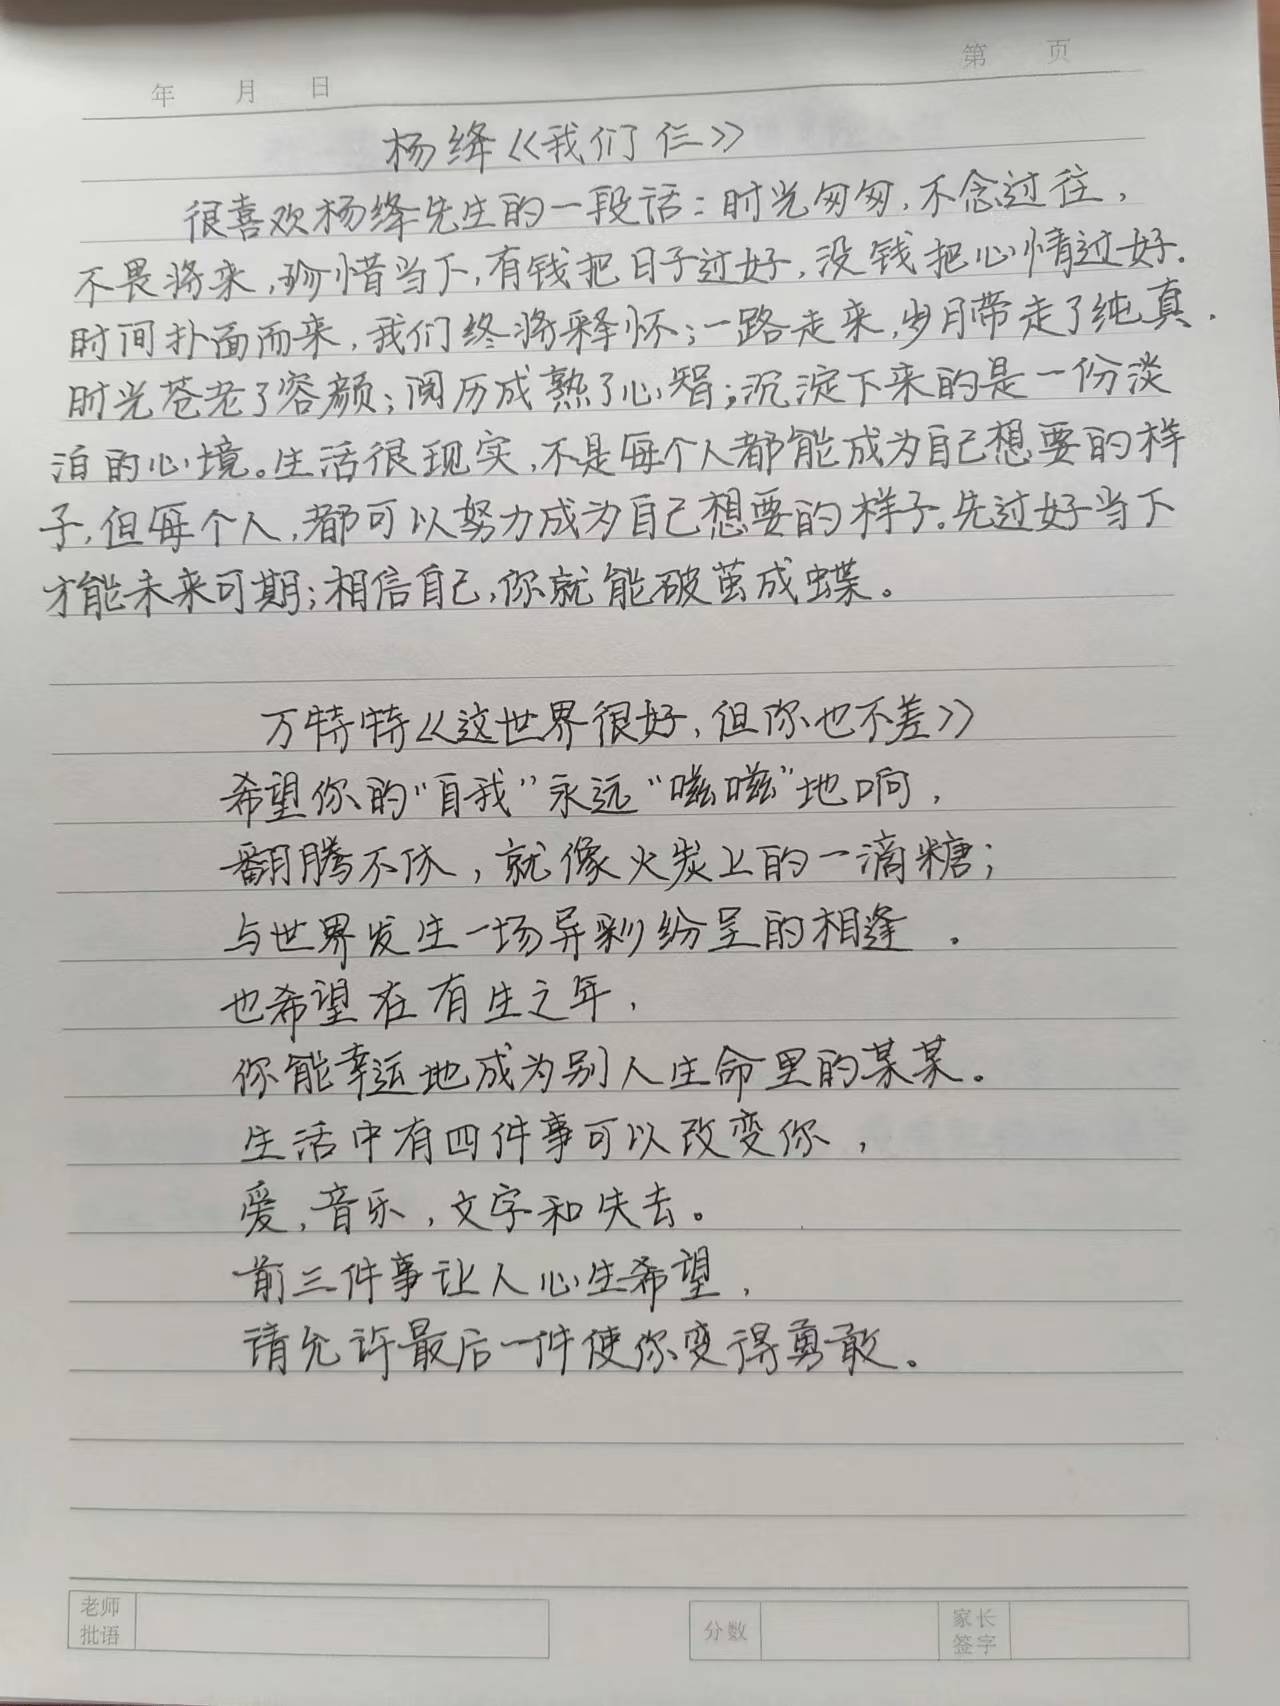 年 月 日 第 页
杨绛《我们仨》
很喜欢杨绛先生的一段话：时光匆匆，不念过往，
不畏将来，珍惜当下，有钱把日子过好，没钱把心情过好.
时间扑面而来，我们终将释怀；一路走来，岁月带走了纯真.
时光苍老了容颜；阅历成熟了心智；沉淀下来的是一份淡
泊的心境。生活很现实，不是每个人都能成为自己想要的样
子，但每个人，都可以努力成为自己想要的样子。先过好当下
才能未来可期；相信自己，你就能破茧成蝶。
万特特《这世界很好，但你也不差》
希望你的“自我”永远“嗞嗞”地响，
翻腾不休，就像火炭上的一滴糖；
与世界发生一场异彩纷呈的相逢。
也希望在有生之年，
你能幸运地成为别人生命里的某某。
生活中有四件事可以改变你，
爱，音乐，文字和失去。
前三件事让人心生希望，
请允许最后一件使你变得勇敢。
老师批语 分数 家长签字